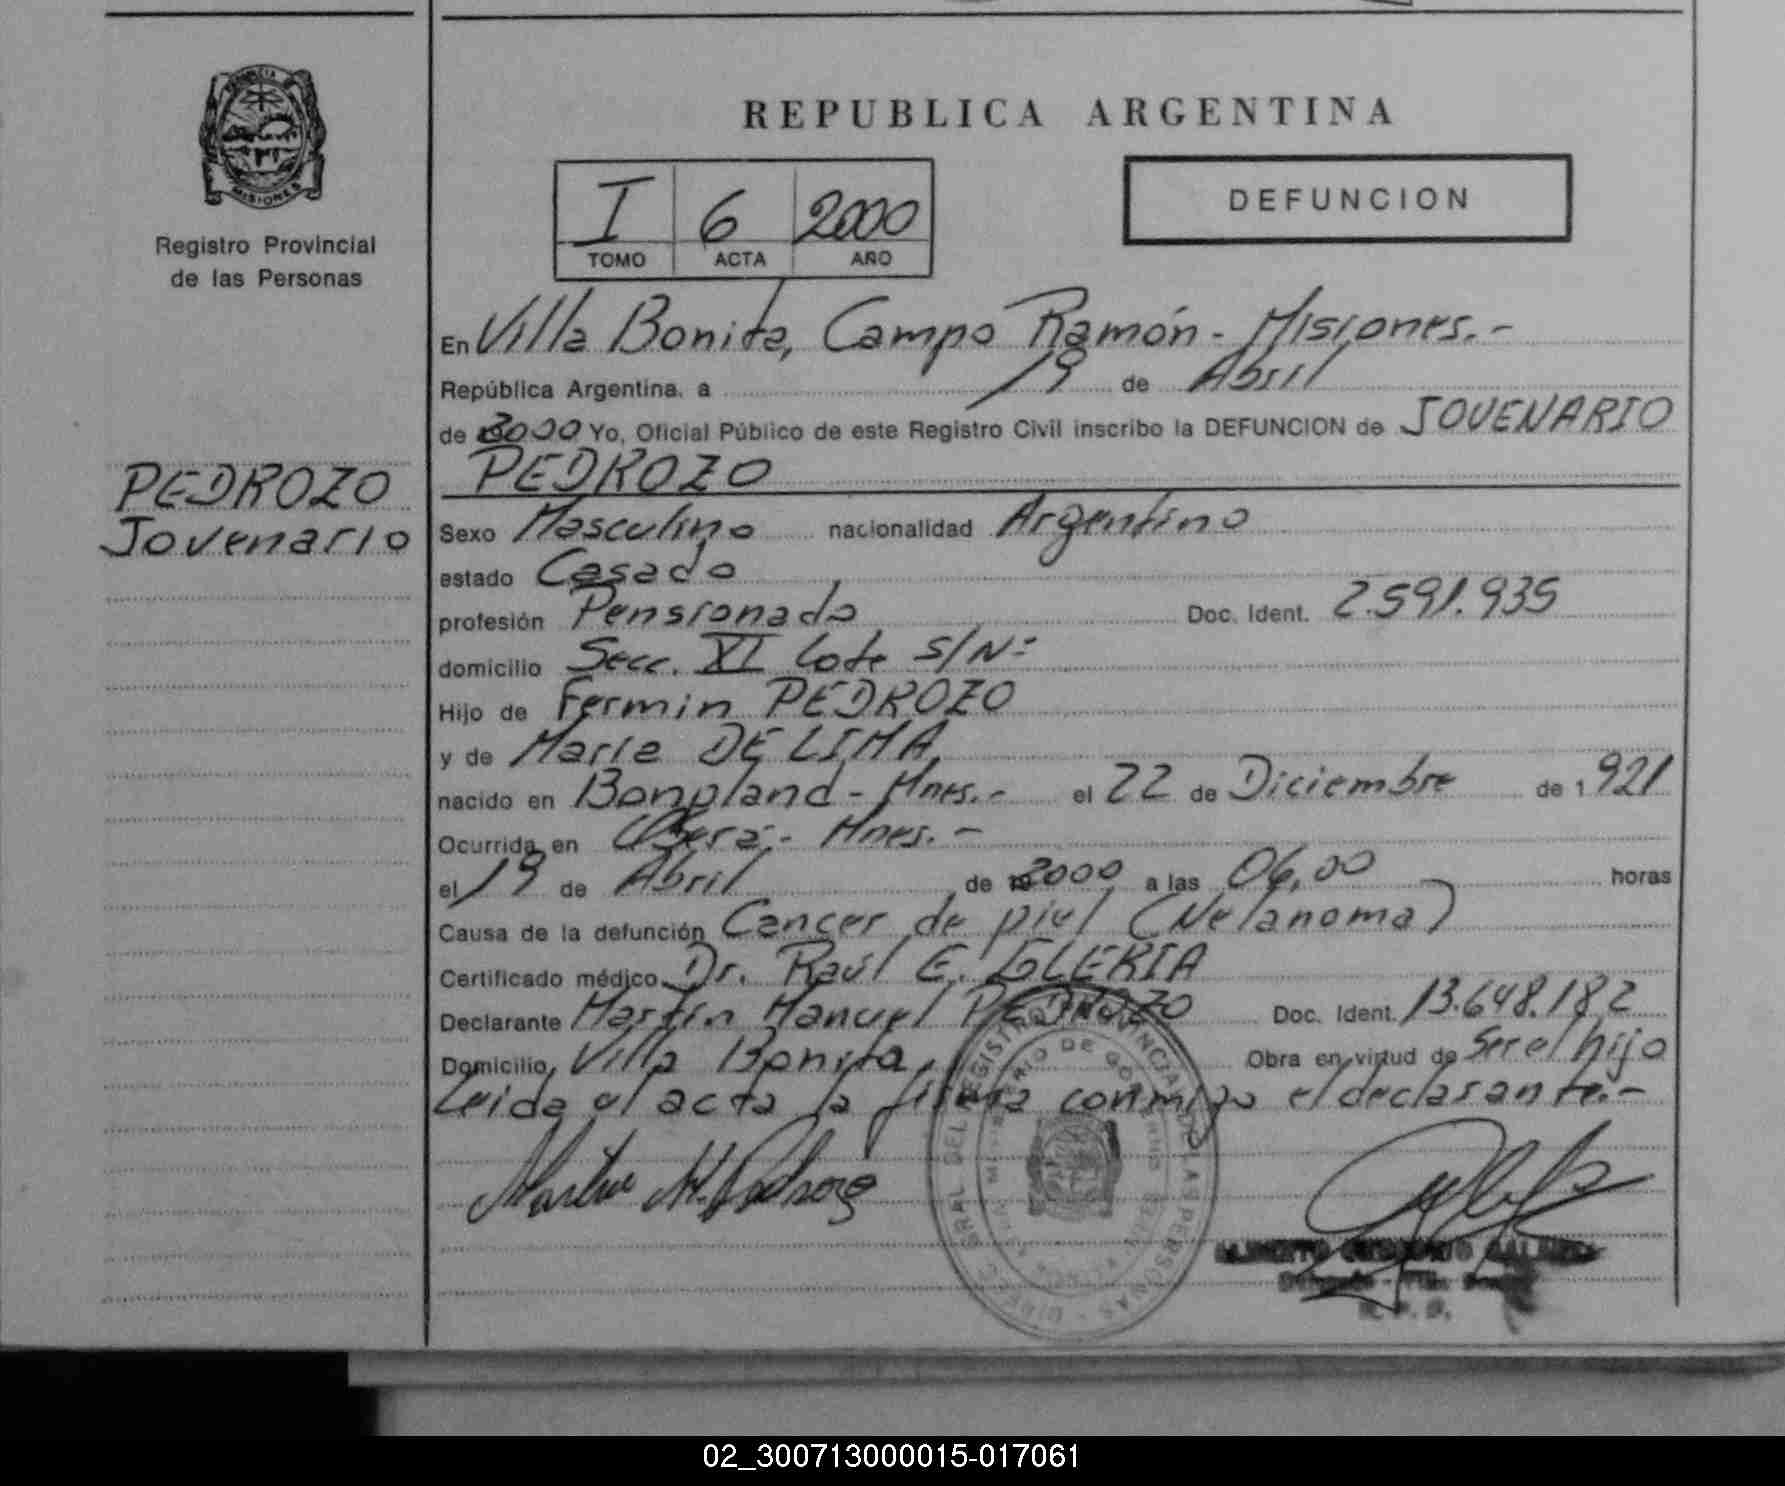 PROVINCIA DE
MISIONES
Registro Provincial
de las Personas
PEDROZO
Jovenario
REPUBLICA ARGENTINA
I 6 2000
TOMO ACTA AÑO
DEFUNCION
En Villa Bonita, Campo Ramón - Misiones.-
República Argentina, a 19 de Abril
de 2000 Yo, Oficial Público de este Registro Civil inscribo la DEFUNCION de JOVENARIO
PEDROZO
Sexo Masculino nacionalidad Argentino
estado Casado
profesión Pensionado Doc. Ident. 2.591.935
domicilio Secc. XI Lote S/Nº
Hijo de Fermin PEDROZO
y de Maria DE LIMA
nacido en Bonpland - Mnes.- el 22 de Diciembre de 1921
Ocurrida en Oberá - Mnes.-
el 19 de Abril de 2000 a las 06,00 horas
Causa de la defunción Cancer de piel (Melanoma)
Certificado médico Dr. Raúl E. IGLERIA
Declarante Martin Manuel PEDROZO Doc. Ident. 13.648.182
Domicilio Villa Bonita Obra en virtud de Ser el hijo
Leida el acta la firma conmigo el declarante.-
Martin M. Pedrozo
REGISTRO PROVINCIAL DE LAS PERSONAS
MINISTERIO DE GOBIERNO
02_300713000015-017061